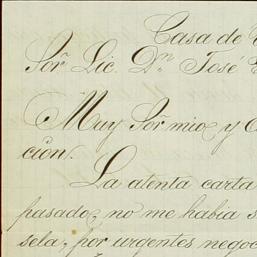 Casa de
Sor̃ Lic. Dn José
Muy Sor̃ mio, y
ción.
La atenta carta
pasado, no me habia
sela, por urgentes negoc